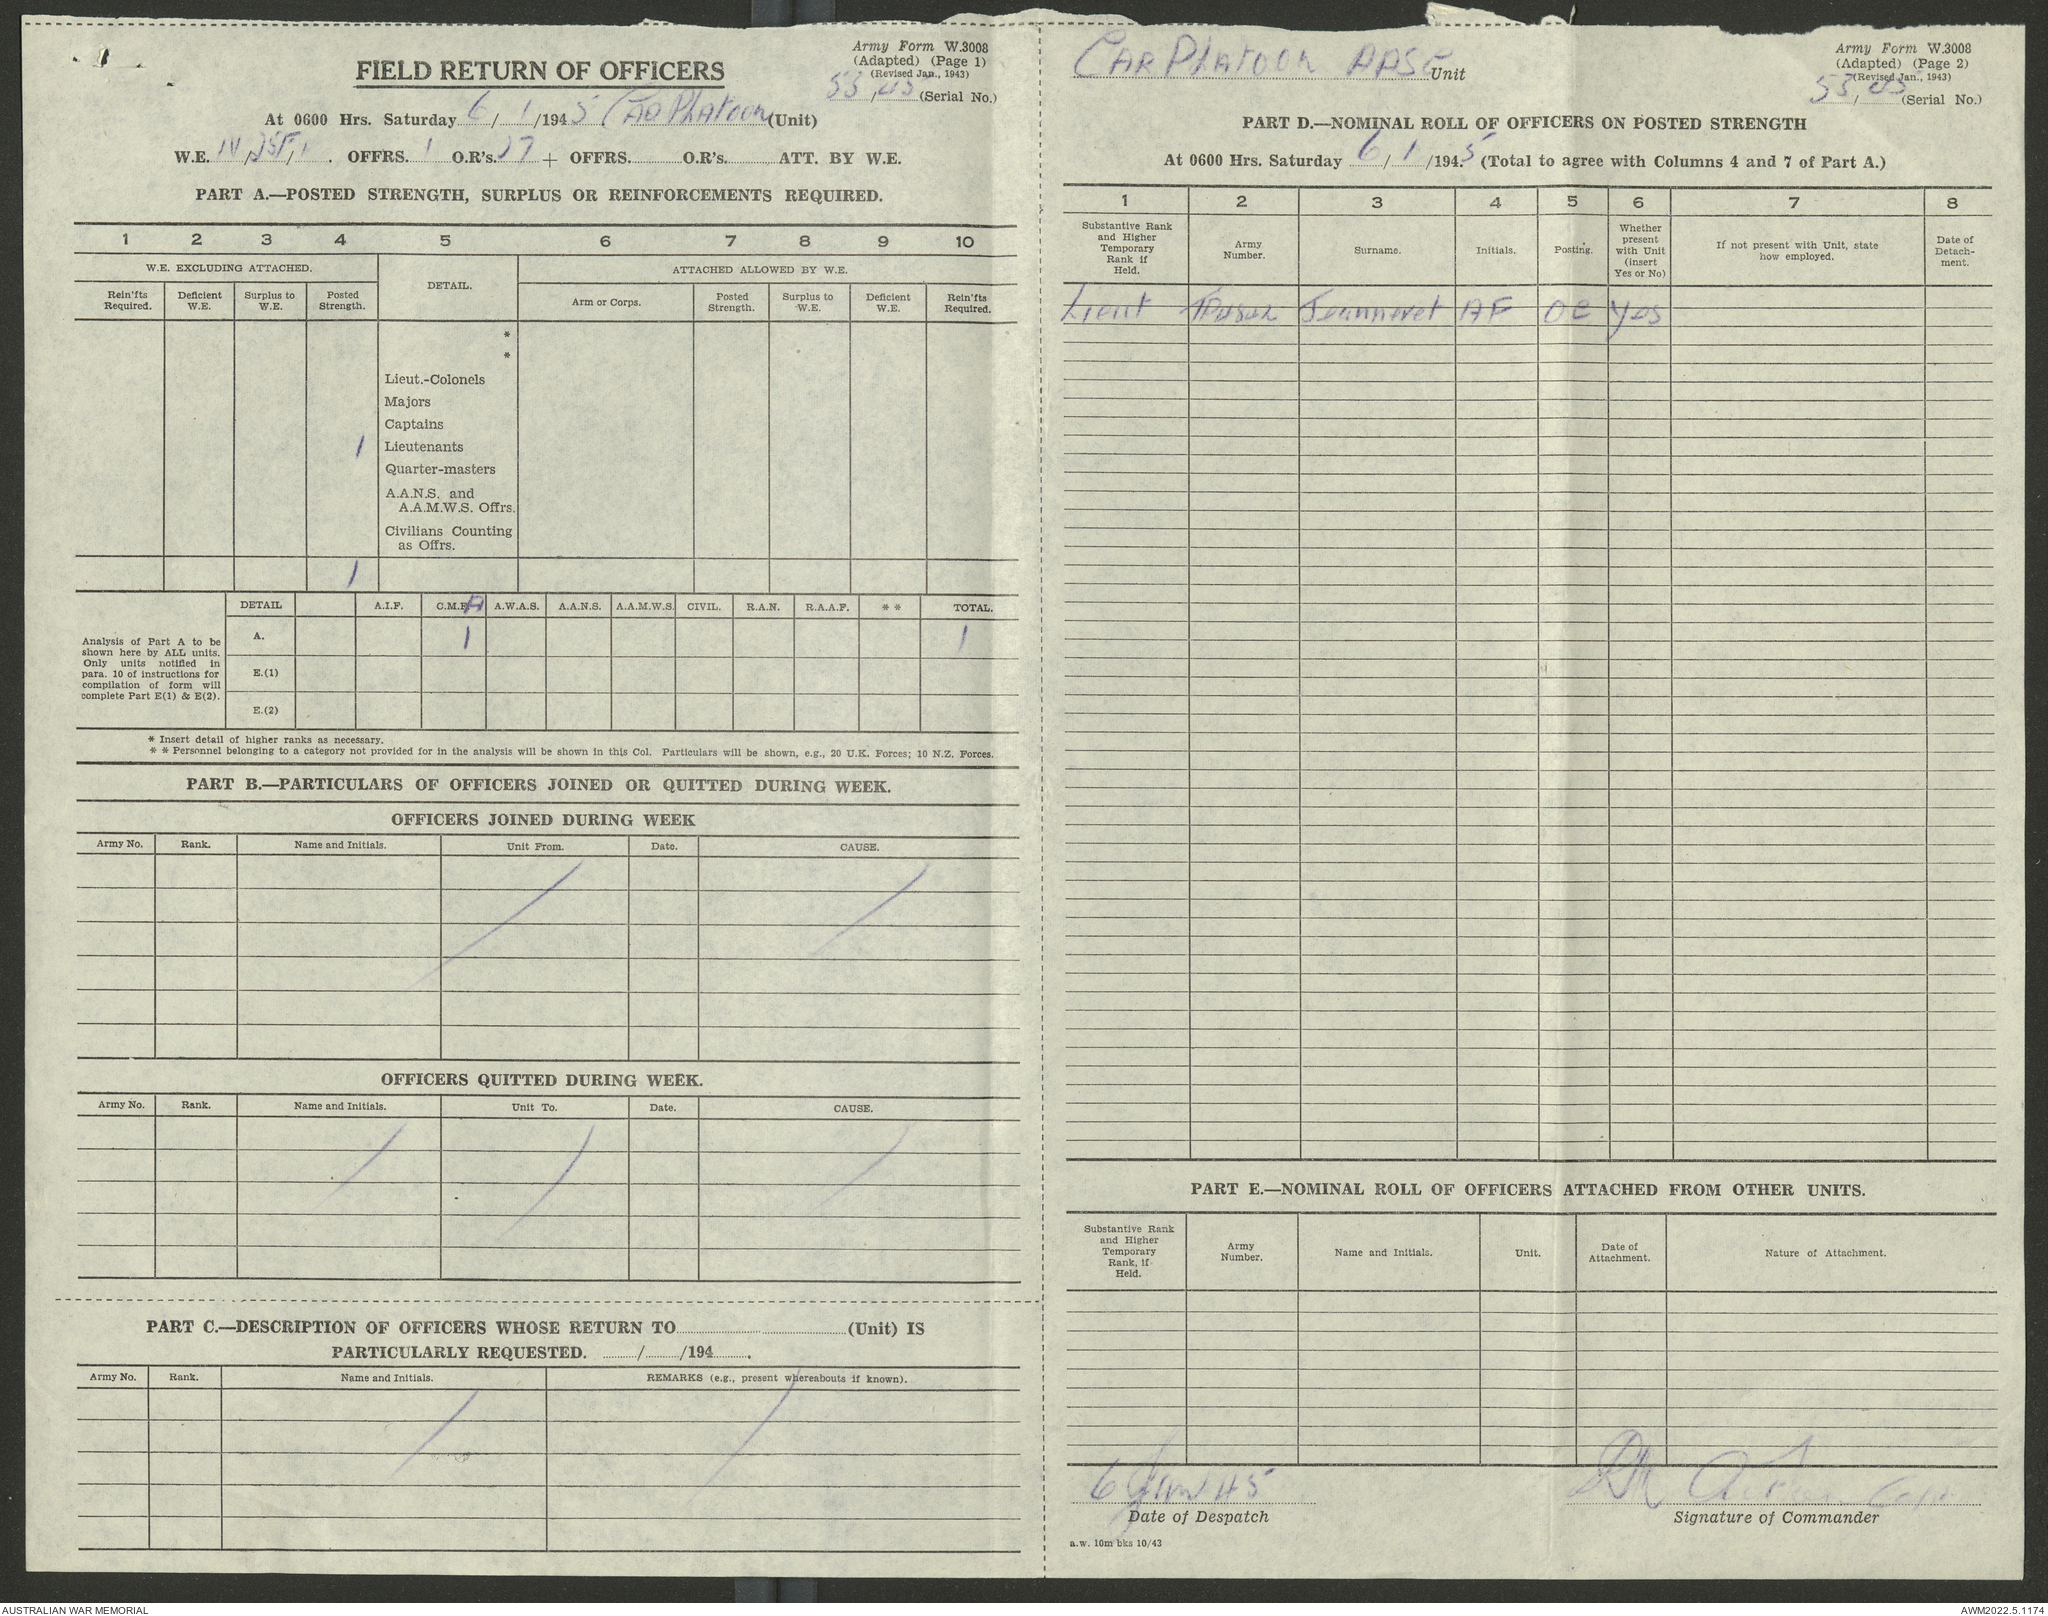 Army Form W.3008
(Adapted) (Page 1)
(Revised Jan., 1943)
(Serial No.)
FIELD RETURN OF OFFICERS
At 0600 Hrs. Saturday 6/1/1945 Car Platoon (Unit)
W.E. OFFRS. 1 O.R's. 27 + OFFRS. O.R's. ATT. BY W.E.
PART A.—POSTED STRENGTH, SURPLUS OR REINFORCEMENTS REQUIRED.
1 2 3 4 5 6 7 8 9 10
W.E. EXCLUDING ATTACHED. DETAIL. ATTACHED ALLOWED BY W.E.
Rein'fts Required. Deficient W.E. Surplus to W.E. Posted Strength. Arm or Corps. Posted Strength. Surplus to W.E. Deficient W.E. Rein'fts Required.
*
*
Lieut.-Colonels
Majors
Captains
1 Lieutenants
Quarter-masters
A.A.N.S. and
A.A.M.W.S. Offrs.
Civilians Counting
as Offrs.
1
DETAIL A.I.F. C.M.F. A.W.A.S. A.A.N.S. A.A.M.W.S. CIVIL. R.A.N. R.A.A.F. * * TOTAL.
Analysis of Part A to be
shown here by ALL units.
Only units notified in
para. 10 of instructions for
compilation of form will
complete Part E(1) & E(2).
A. 1 1
E.(1)
E.(2)
* Insert detail of higher ranks as necessary.
* * Personnel belonging to a category not provided for in the analysis will be shown in this Col. Particulars will be shown, e.g., 20 U.K. Forces; 10 N.Z. Forces.
PART B.—PARTICULARS OF OFFICERS JOINED OR QUITTED DURING WEEK.
OFFICERS JOINED DURING WEEK
Army No. Rank. Name and Initials. Unit From. Date. CAUSE.
OFFICERS QUITTED DURING WEEK.
Army No. Rank. Name and Initials. Unit To. Date. CAUSE.
PART C.—DESCRIPTION OF OFFICERS WHOSE RETURN TO (Unit) IS
PARTICULARLY REQUESTED. / /194 .
Army No. Rank. Name and Initials. REMARKS (e.g., present whereabouts if known).
Car Platoon AASC Unit
Army Form W.3008
(Adapted) (Page 2)
(Revised Jan., 1943)
(Serial No.)
PART D.—NOMINAL ROLL OF OFFICERS ON POSTED STRENGTH
At 0600 Hrs. Saturday 6/1/1945 (Total to agree with Columns 4 and 7 of Part A.)
1 2 3 4 5 6 7 8
Substantive Rank and Higher Temporary Rank if Held. Army Number. Surname. Initials. Posting. Whether present with Unit (insert Yes or No) If not present with Unit, state how employed. Date of Detach-ment.
Lieut Jeanneret AF OC Yes
PART E.—NOMINAL ROLL OF OFFICERS ATTACHED FROM OTHER UNITS.
Substantive Rank and Higher Temporary Rank, if Held. Army Number. Name and Initials. Unit. Date of Attachment. Nature of Attachment.
6 Jan 45
Date of Despatch
Signature of Commander
a.w. 10m bks 10/43
AUSTRALIAN WAR MEMORIAL
AWM2022.5.1174